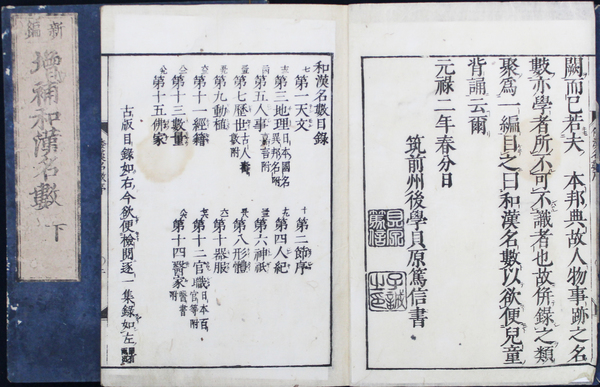 闕而已若夫 本邦典故人物事跡之名
數亦學者所不可不識者也故併錄之類
聚爲一編目之曰和漢名數以欲便兒童
背誦云爾
元祿二年春分日
筑前州後學貝原篤信書
貝原篤信
子誠之印
和漢名數目錄
第一天文 第二節序
第三地理 日本國名異邦名附 第四人紀
第五人事 第六神祇
第七歷世 古人壽數附 第八形體
第九動植 第十器服
第十一經籍 第十二官職 日本百官等附
第十三數量 第十四醫家 醫書附
第十五佛家
古版目錄如右今欲便檢閱逐一集錄如左
新編
增補和漢名數 下